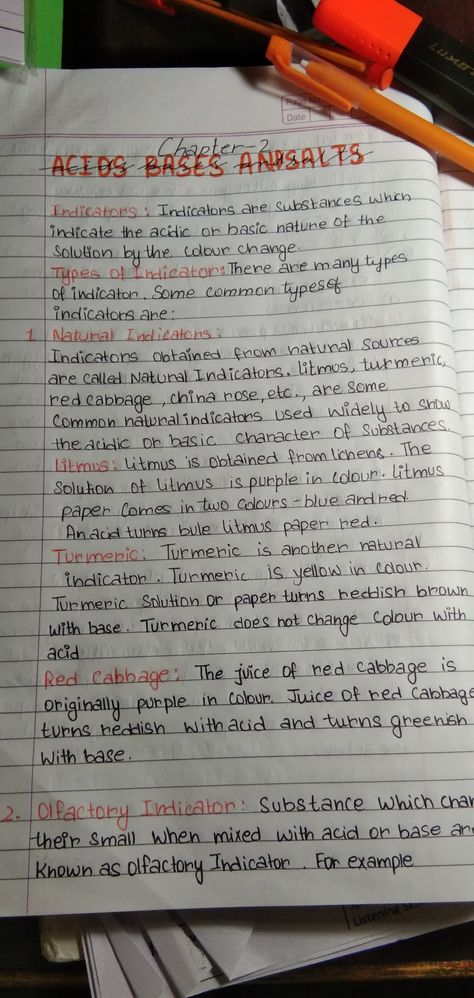 Page No.
Date
LUXOR
Chapter-2
ACIDS BASES AND SALTS
Indicators: Indicators are substances which
indicate the acidic or basic nature of the
solution by the colour change.
Types of Indicator: There are many types
of indicator. Some common types of
indicators are:
1. Natural Indicators:
Indicators obtained from natural sources
are called Natural Indicators. Litmus, turmeric,
red cabbage, china rose, etc., are some
common natural indicators used widely to show
the acidic or basic character of substances.
Litmus: Litmus is obtained from lichens. The
solution of litmus is purple in colour. Litmus
paper comes in two colours - blue and red.
An acid turns bule litmus paper red.
Turmeric: Turmeric is another natural
indicator. Turmeric is yellow in colour.
Turmeric solution or paper turns reddish brown
with base. Turmeric does not change colour with
acid
Red Cabbage: The juice of red cabbage is
originally purple in colour. Juice of red cabbage
turns reddish with acid and turns greenish
with base.
2. Olfactory Indicator: Substance which chan
their small when mixed with acid or base are
known as olfactory Indicator. For example
Listening